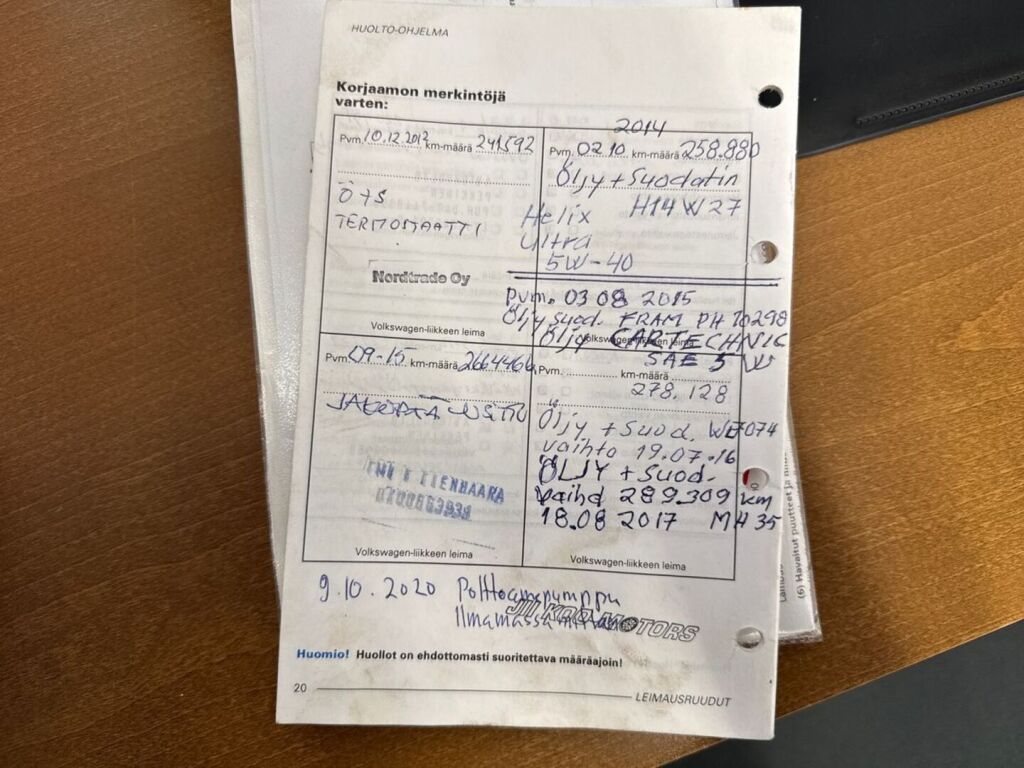 HUOLTO-OHJELMA
Korjaamon merkintöjä
varten:
Pvm. 10.12.2012 km-määrä 241592
Ö+S
TERMOSTAATTI
Nordtrade Oy
Volkswagen-liikkeen leima
2014
Pvm. 02 10 km-määrä 258.880
Öljy + Suodatin
H14W27
Helix
Ultra
5W-40
Pvm. 03 08 2015
Öljy suod. FRAM PH10298
Öljy CARTECHNIC
SAE 5 W
Volkswagen-liikkeen leima
Pvm. 09-15 km-määrä
Volkswagen-liikkeen leima
Pvm. km-määrä
278.128
Öljy + Suod. W
vaihto 19.07.16
ÖLJY + Suod.
vaihd 289.309 km
18.08 2017 MH 35
Volkswagen-liikkeen leima
9.10.2020 Polttoainepumppu
JII KOO MOTORS
Huomio! Huollot on ehdottomasti suoritettava määräajoin!
20 LEIMAUSRUUDUT
(6) Havaitut puutteet ja